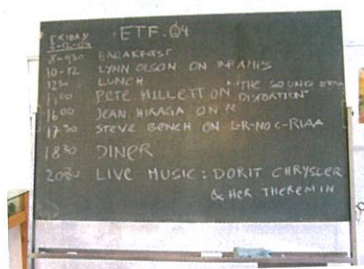 FRIDAY ETF.04
8-930 BREAKFAST
10-12 LYNN OLSON ON PREAMPS
1230 LUNCH
PETE MILLETT ON "THE SOUND OF DISTORTION"
1600 JEAN HIRAGA ON
1730 STEVE BENCH ON L-R-NO C-RIAA
1830 DINER
LIVE MUSIC: DORIT CHRYSLER
& HER THEREMIN